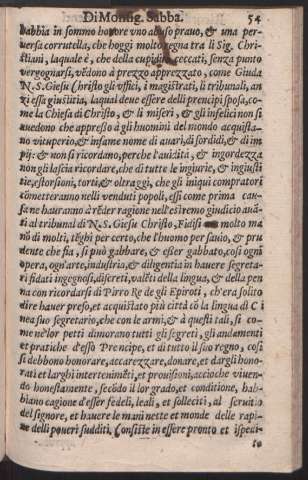 Di Monsig. Sabba. 54
habbia in sommo honore vno abuso prauo, & una per-
uersa corruttela, che hoggi molto regna tra li Sig. Chri-
stiani, laquale è, che della cupidità ceccati, senza punto
vergognarsi, vẽdono à prezzo apprezzato, come Giuda
N.S. Giesu Christo gli vffici, i magistrati, li tribunali, an
zi essa giustitia, laqual deue essere delli prencipi sposa, co-
me la Chiesa di Christo, & li miseri, & gli infelici non si
auedono che appresso à gli huomini del mondo acquista-
no vituperio, & infame nome di auari, di sordidi, & di im
pij: & non si ricordano, perche l'auidità, & ingordezza
non gli lascia ricordare, che di tutte le ingiurie, & ingiusti
tie, estorsioni, torti, & oltraggi, che gli iniqui compratori
cõmetteranno nelli venduti popoli, essi come prima cau-
sa ne hauranno à rẽder ragione nell'estremo giudicio auã-
ti al tribunal di N.S. Giesu Christo, Fidisi molto ma
nõ di molti, tẽghi per certo, che l'huomo per sauio, & pru
dente che sia, si può gabbare, & esser gabbato, cosi ogni
opera, ogn'arte, industria, & diligentia in hauere segreta-
ri fidati ingegnosi, discreti, valẽti della lingua, & della pen
na con ricordarsi di Pirro Re de gli Epiroti, ch'era solito
dire hauer preso, et acquistato più città cõ la lingua di Ci
nea suo segretario, che con le armi, & à questi tali, si co-
me ne' lor petti dimorano tutti gli segreti, gli andamenti
et pratiche d'esso Prencipe, et di tutto il suo regno, cosi
si debbono honorare, accarezzare, donare, et dargli hono-
rati et larghi intertenimẽti, et prouisioni, accioche viuen-
do honestamente, secõdo il lor grado, et conditione, hab-
biano cagione d'esser fedeli, leali, et solleciti, al seruitio
del signore, et hauere le mani nette et monde delle rapi-
ne delli poueri sudditi. Consiste in essere pronto et ispedi-
to